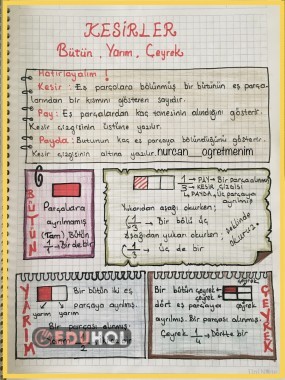 KESİRLER
Bütün, Yarım, Çeyrek
Hatırlayalım!
Kesir: Eş parçalara bölünmüş bir bütünün eş parça-
larından bir kısmını gösteren sayıdır.
Pay: Eş parçalardan kaç tanesinin alındığını gösterir.
Kesir çizgisinin üstüne yazılır.
Payda: Bütünun kaç eş parçaya bölündüğünü gösterir.
Kesir çizgisinin altına yazılır. nurcan__ogretmenim
BÜTÜN
Parçalara
ayrılmamış
(Tam) Bütün
Birdebir
1 → PAY → Bir parça alınmış
→ KESİR ÇİZGİSİ
3 → PAYDA → Üç parçaya
ayrılmış
Yukarıdan aşağı okurken;
1/3 → Bir bölü üç
Aşağıdan yukarı okurken;
1/3 → Üç de bir
şeklinde
okuruz.
YARIM
yarım yarım
Bir bütün iki eş
parçaya ayrılmış.
Bir parçası alınmış.
2
EDUHOL
ÇEYREK
çeyrek
çeyrek
Bir bütün
dört eş parçaya
ayrılmış. Bir parçası alınmış.
Çeyrek 1/4 → Dörtte bir